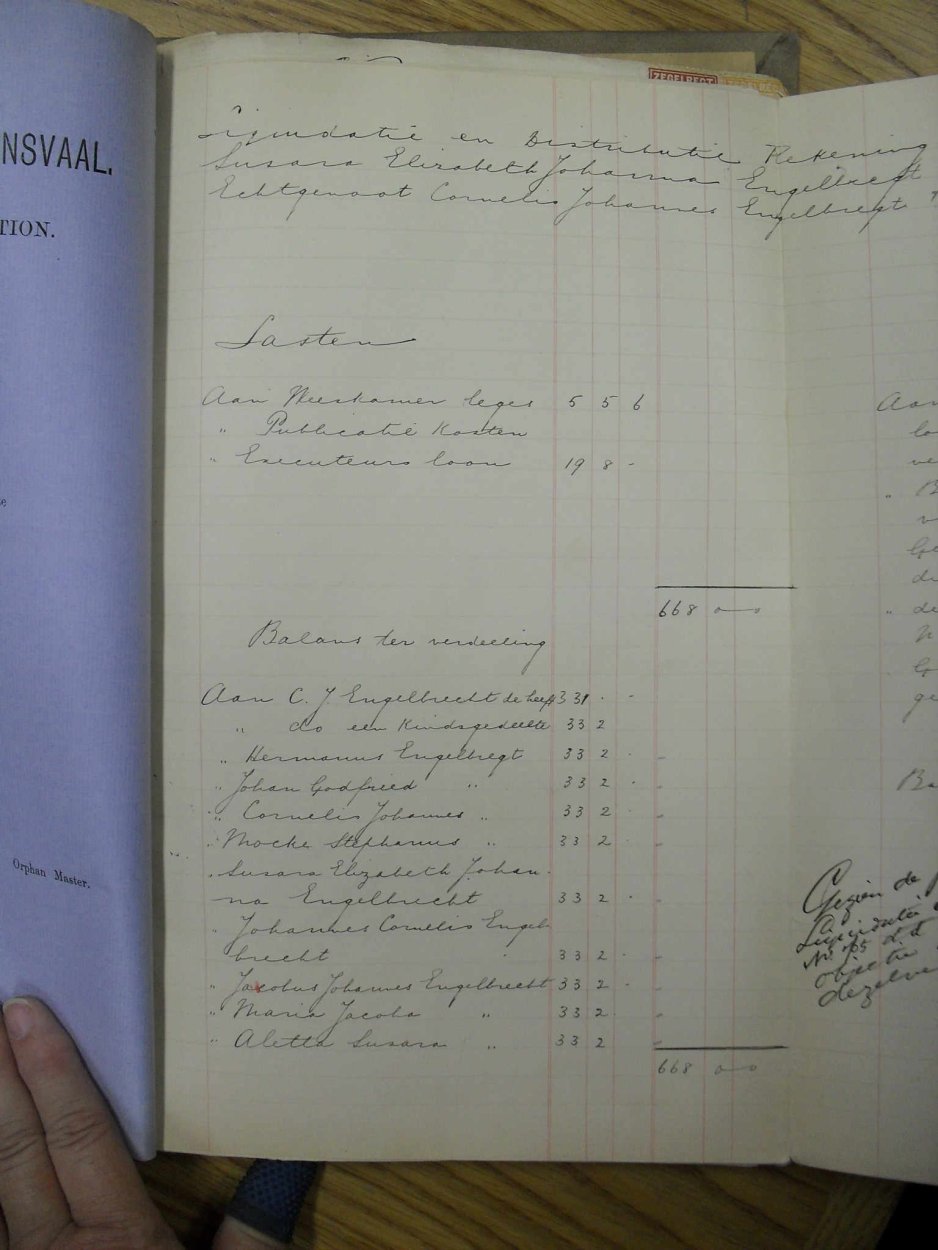 NSVAAL.
TION.
Orphan Master.
ZEGELREGT
Liquidatie en Distributie Rekening
Susara Elizabeth Johanna Engelbregt
Echtgenoot Cornelis Johannes Engelbregt
Lasten
Aan Weeskamer leges 5 5 6
" Publicatie Kosten
" Executeurs loon 19 8 -
668 0 0
Balans ter verdeeling
Aan C. J. Engelbrecht de helft 331 . -
" do een Kindsgedeelte 33 2
" Hermanus Engelbregt 33 2 -
" Johan Godfried " 33 2 -
" Cornelis Johannes " 33 2 -
" Mocke Stephanus " 33 2 -
" Susara Elizabeth Johan-
na Engelbrecht 33 2 -
" Johannes Cornelis Engel-
brecht 33 2 -
" Jacobus Johannes Engelbrecht 33 2 -
" Maria Jacoba " 33 2 -
" Aletta Susara " 33 2 -
668 0 0
Aan
lo
ve
" B
de
" de
ge
Ba
Gezien de
Liquidatie
No. 165 d.d
objectie
dezelve